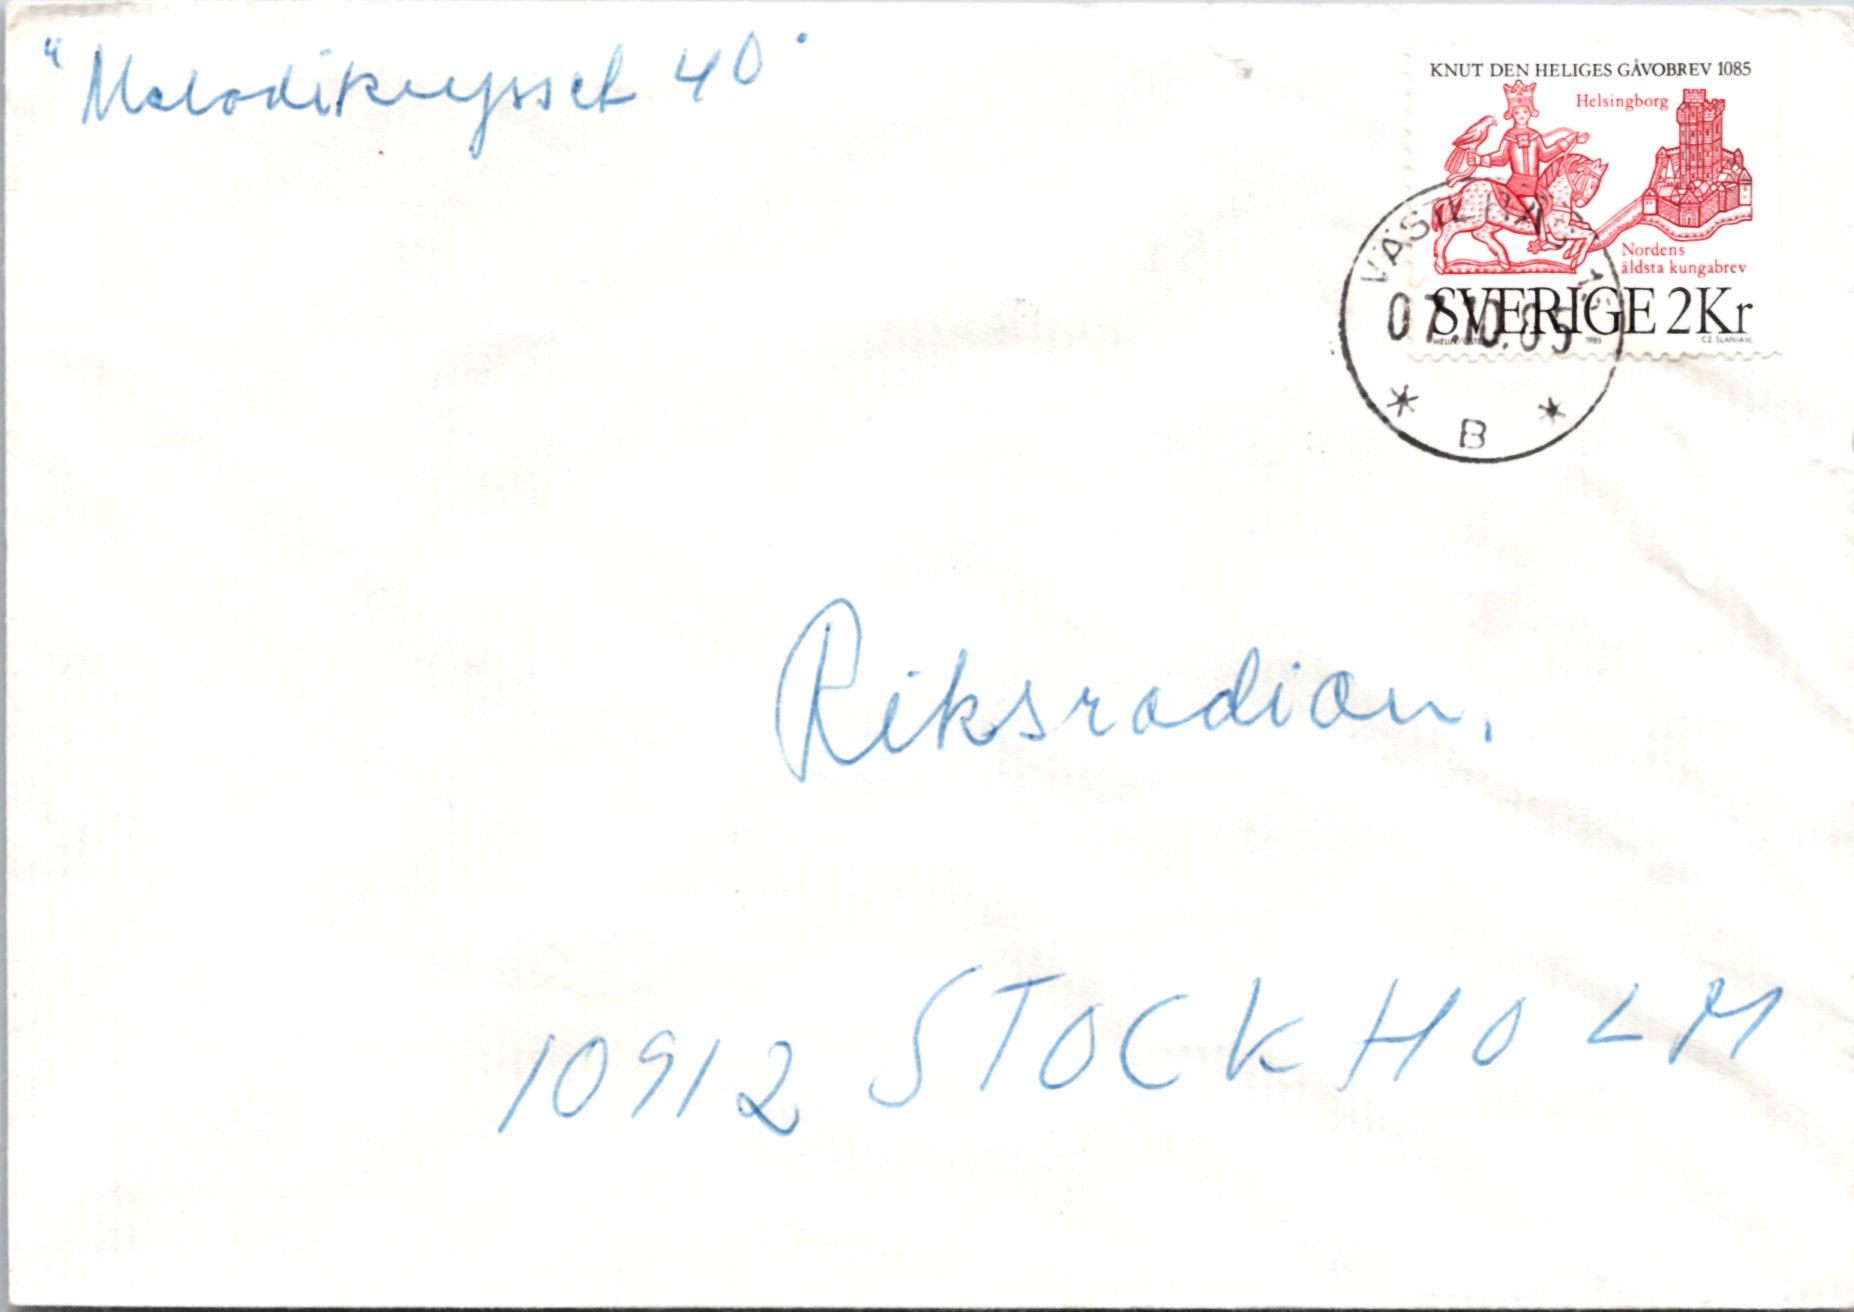 "Melodikrysset 40"
KNUT DEN HELIGES GÅVOBREV 1085
Helsingborg
Nordens
äldsta kungabrev
SVERIGE 2Kr
1985
CZ. SLANIA SC.
07.10.85
B
Riksradion.
10912 STOCKHOLM